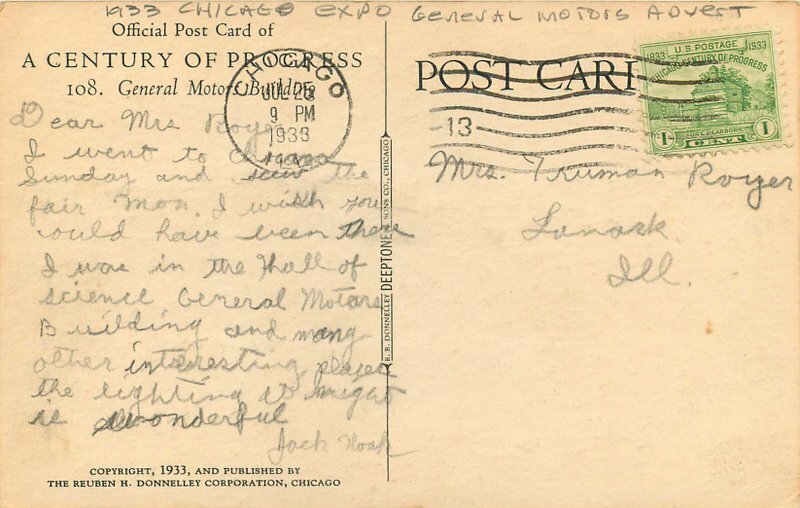 1933 CHICAGO EXPO GENERAL MOTORS ADVERT
Official Post Card of
A CENTURY OF PROGRESS
108. General Motors Building
Dear Mrs Royer
I went to Chicago
Sunday and seen the
fair Mon. I wish you
could have been there
I was in the Hall of
science General Motors
Building and many
other interesting places
the lighting at night
is wonderful
Jack Noak
COPYRIGHT, 1933, AND PUBLISHED BY
THE REUBEN H. DONNELLEY CORPORATION, CHICAGO
R. R. DONNELLEY DEEPTONE & SONS CO., CHICAGO
CHICAGO
JUL 25
9 PM
1933
13
POST CARD
1833 U.S. POSTAGE 1933
CHICAGO CENTURY OF PROGRESS
FORT DEARBORN
1c CENT 1c
Mrs. Truman Royer
Lanark
Ill.